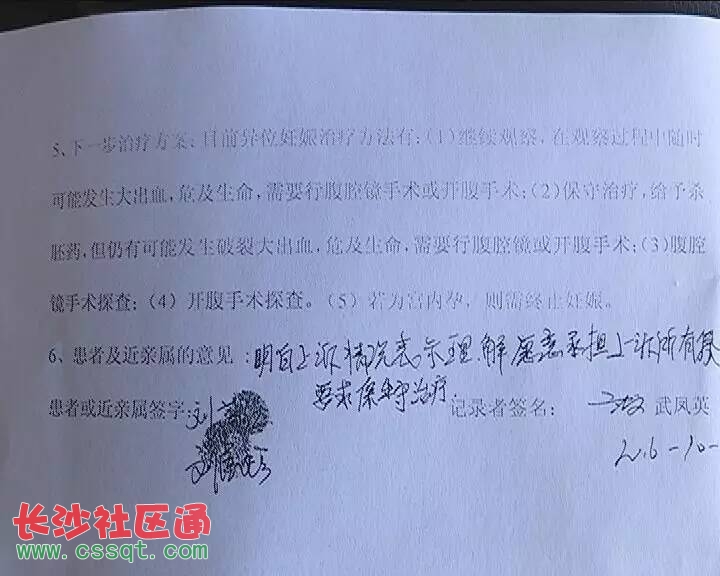 5、下一步治疗方案：目前异位妊娠治疗方法有：（1）继续观察，在观察过程中随时
可能发生大出血，危及生命，需要行腹腔镜手术或开腹手术；（2）保守治疗，给予杀
胚药，但仍有可能发生破裂大出血，危及生命，需要行腹腔镜或开腹手术；（3）腹腔
镜手术探查；（4）开腹手术探查。（5）若为宫内孕，则需终止妊娠。
6、患者及近亲属的意见：明白上诉情况表示理解愿意承担上诉所有
要求保守治疗
患者或近亲属签字：刘 记录者签名： 武凤英
长沙社区通
www.cssqt.com